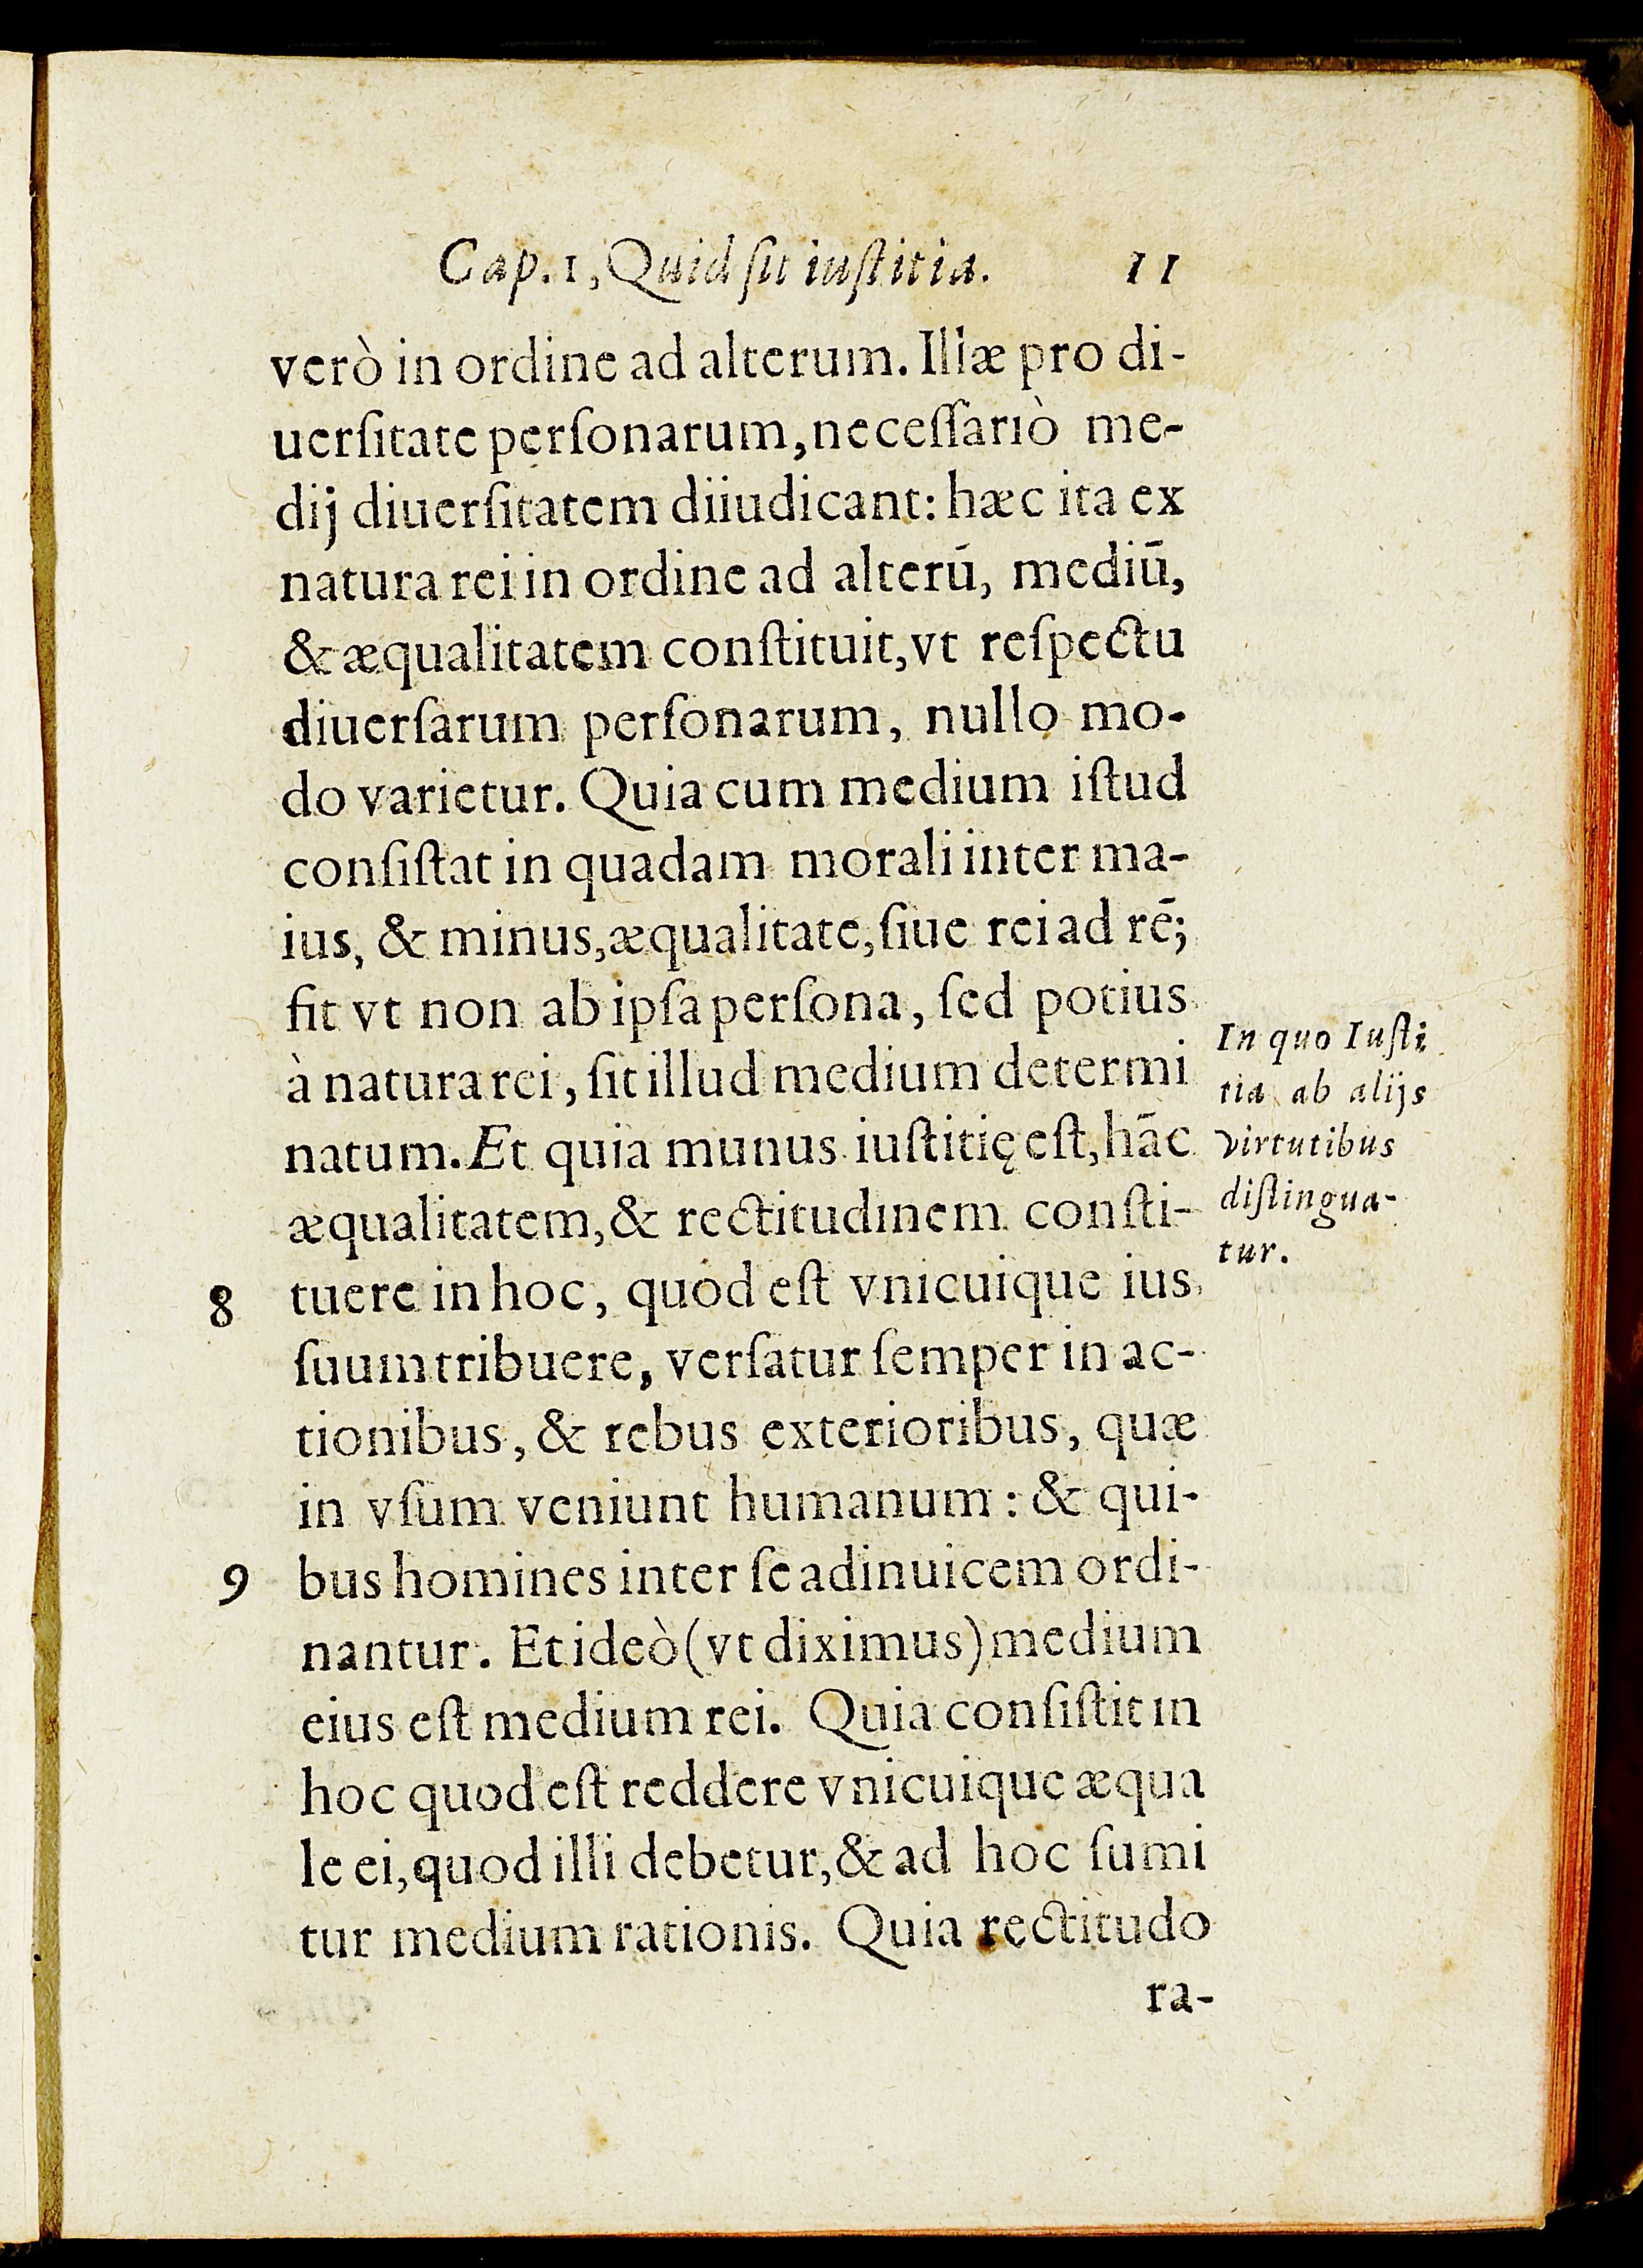 Cap. 1, Quid ſit iuſtitia. 11
verò in ordine ad alterum. Illæ pro di-
uerſitate perſonarum, neceſſariò me-
dij diuerſitatem diiudicant: hæc ita ex
natura rei in ordine ad alterū, mediū,
& æqualitatem conſtituit, vt reſpectu
diuerſarum perſonarum, nullo mo-
do varietur. Quia cum medium iſtud
conſiſtat in quadam morali inter ma-
ius, & minus, æqualitate, ſiue rei ad rē;
fit vt non ab ipſa perſona, ſed potius
à natura rei, ſit illud medium determi
natum. Et quia munus iuſtitię eſt, hāc
æqualitatem, & rectitudinem conſti-
8 tuere in hoc, quod eſt vnicuique ius
ſuum tribuere, verſatur ſemper in ac-
tionibus, & rebus exterioribus, quæ
in vſum veniunt humanum: & qui-
9 bus homines inter ſe adinuicem ordi-
nantur. Et ideò (vt diximus) medium
eius eſt medium rei. Quia conſiſtit in
hoc quod eſt reddere vnicuique æqua
le ei, quod illi debetur, & ad hoc ſumi
tur medium rationis. Quia rectitudo
ra-
In quo Iuſti
tia ab alijs
virtutibus
diſtingua-
tur.